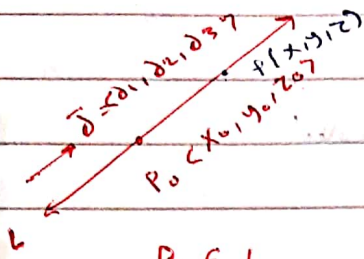 d̅ = <d1, d2, d3>
P(x, y, z)
P0 < x0, y0, z0 >
L